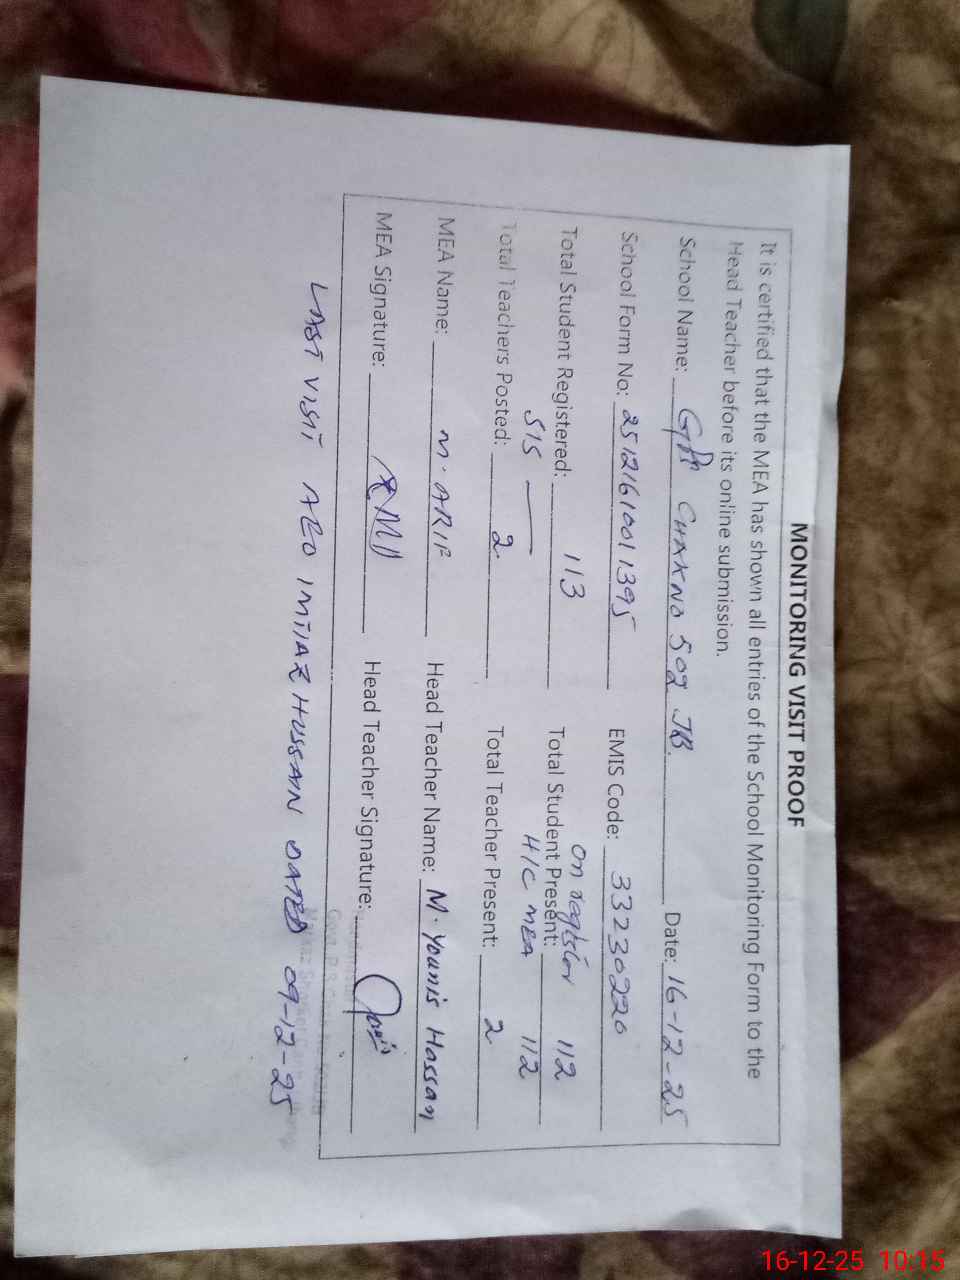 MONITORING VISIT PROOF
It is certified that the MEA has shown all entries of the School Monitoring Form to the
Head Teacher before its online submission.
School Name: GPS CHAKNO 502 JB. Date: 16-12-25
School Form No: 25121610011395 EMIS Code: 33230220
On Register 112
Total Student Registered: 113 Total Student Present:
SIS — H/C MEA 112
Total Teachers Posted: 2 Total Teacher Present: 2
MEA Name: M. ARIF Head Teacher Name: M. Younis Hassan
MEA Signature: Head Teacher Signature:
LAST VISIT AEO IMTIAZ HUSSAIN DATED 09-12-25
16-12-25 10:15